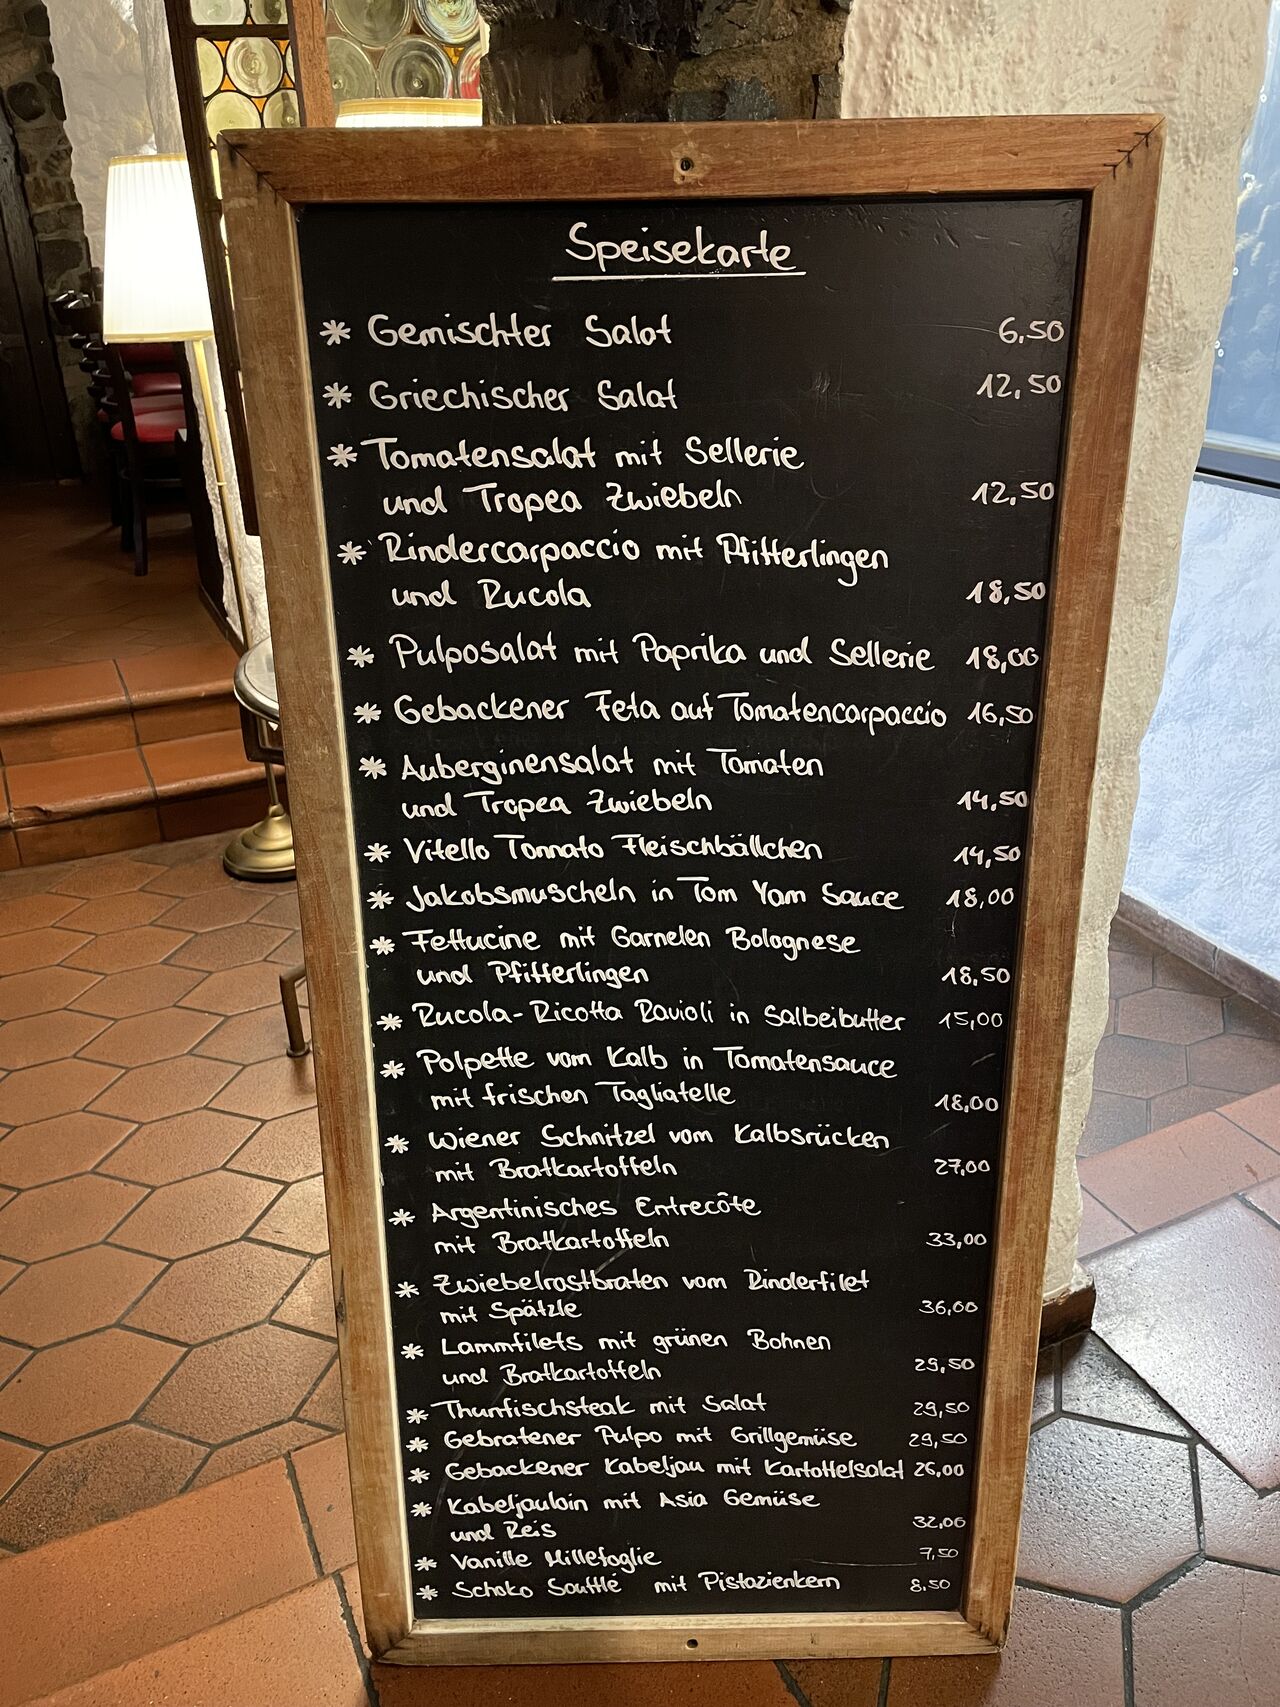 Speisekarte
* Gemischter Salat 6,50
* Griechischer Salat 12,50
* Tomatensalat mit Sellerie
und Tropea Zwiebeln 12,50
* Rindercarpaccio mit Pfifferlingen
und Rucola 18,50
* Pulposalat mit Paprika und Sellerie 18,00
* Gebackener Feta auf Tomatencarpaccio 16,50
* Auberginensalat mit Tomaten
und Tropea Zwiebeln 14,50
* Vitello Tonnato Fleischbällchen 14,50
* Jakobsmuscheln in Tom Yam Sauce 18,00
* Fettucine mit Garnelen Bolognese
und Pfifferlingen 18,50
* Rucola-Ricotta Ravioli in Salbeibutter 15,00
* Polpette vom Kalb in Tomatensauce
mit frischen Tagliatelle 18,00
* Wiener Schnitzel vom Kalbsrücken
mit Bratkartoffeln 27,00
* Argentinisches Entrecôte
mit Bratkartoffeln 33,00
* Zwiebelrostbraten vom Rinderfilet
mit Spätzle 36,00
* Lammfilets mit grünen Bohnen
und Bratkartoffeln 29,50
* Thunfischsteak mit Salat 29,50
* Gebratener Pulpo mit Grillgemüse 29,50
* Gebackener Kabeljau mit Kartoffelsalat 26,00
* Kabeljauloin mit Asia Gemüse
und Reis 32,00
* Vanille Millefoglie 7,50
* Schoko Soufflé mit Pistazienkern 8,50